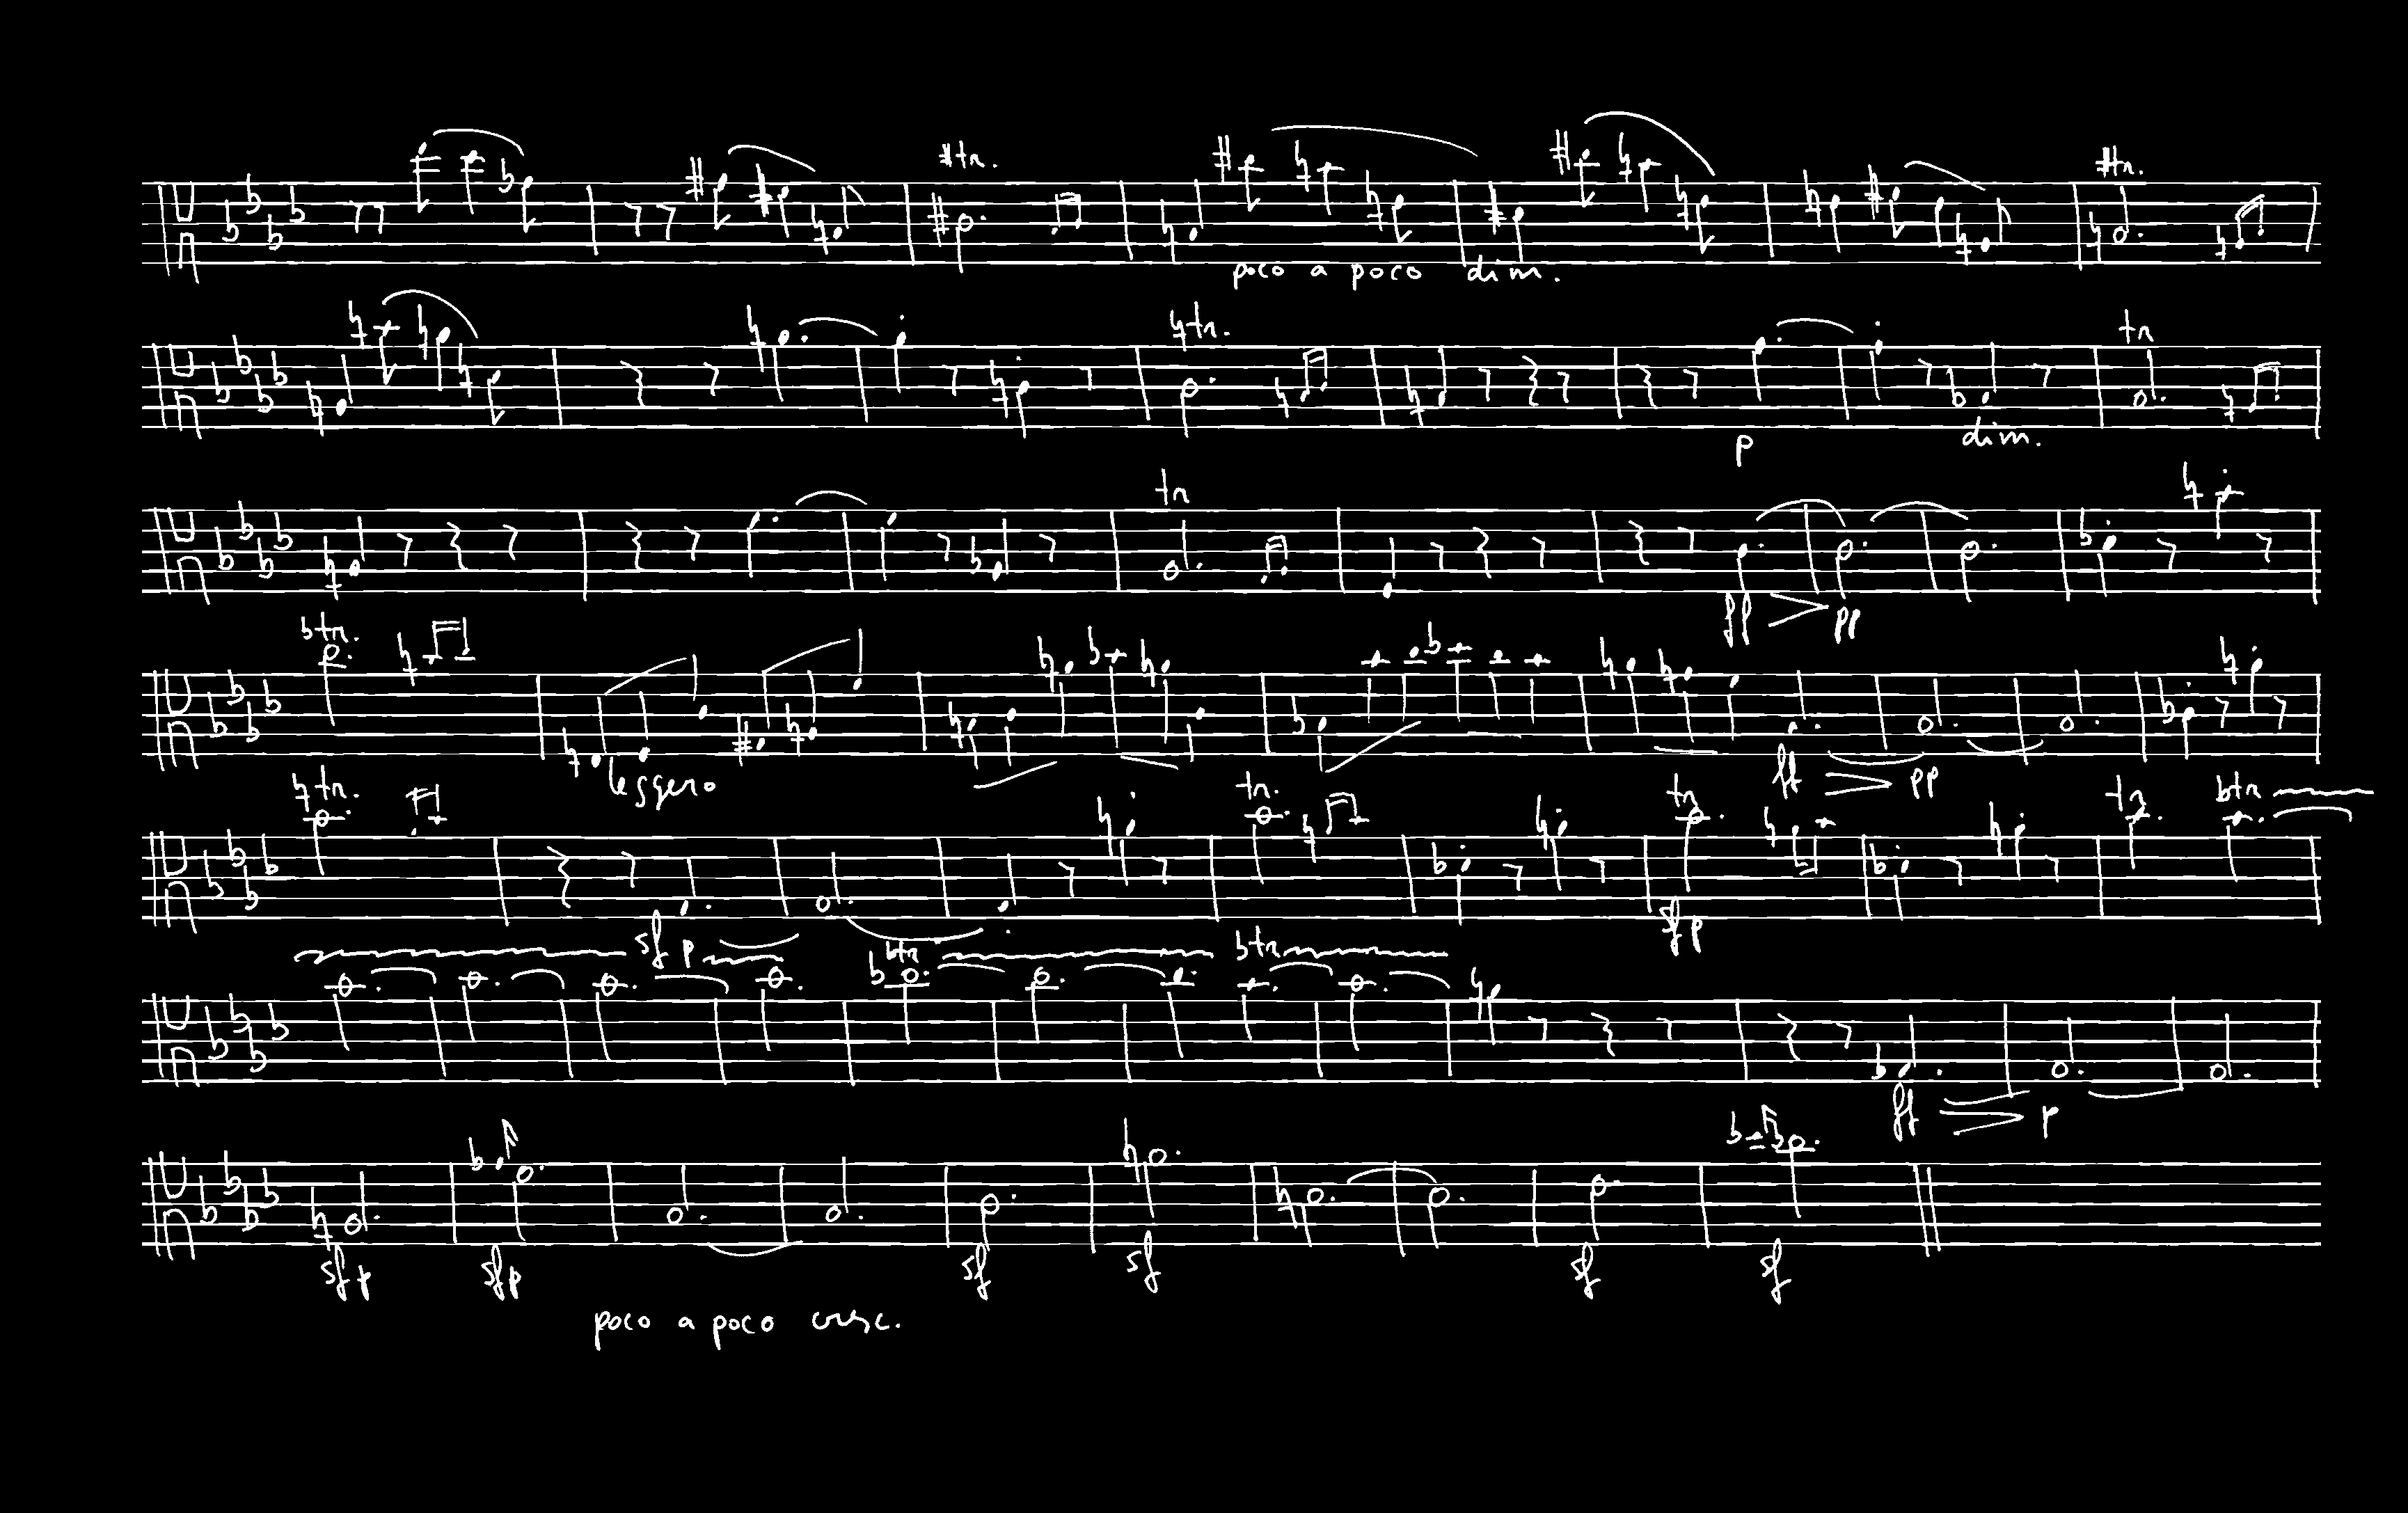 tr. tr.
poco a poco dim.
tr. tr
p dim.
tr
ff pp
tr.
leggero
ff pp
tr. tr. tr tr tr
sf p
sf p tr tr
ff p
sf p sf p sf sf sf sf
poco a poco cresc.